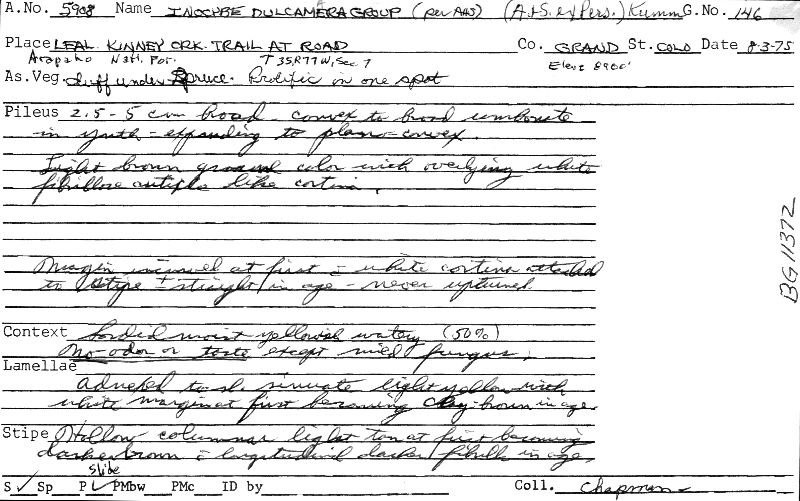 A.No. 5908 Name INOCYBE DULCAMERA GROUP (per AHS) (A.+S. ex Pers.) Kumm G.No. 146
Place LEAL KINNEY CRK. TRAIL AT ROAD Co. GRAND St. COLO Date 8-3-75
Arapaho Natl. For. T35, R77W, Sec. 7 Elev 8900'
As.Veg. duff under Spruce. Prolific in one spot
Pileus 2.5-5 cm broad - convex to broad umbonate
in youth - expanding to plano-convex.
Light brown ground color with overlying white
fibrillose like cortina.
Margin incurved at first c̄ white cortina attached
to stipe ± straight in age - never upturned.
Context moist yellowish watery (50%)
No odor or taste except mild fungus.
Lamellae
adnexed to sl. sinuate light yellow with
white margin at first becoming clay-brown in age.
Stipe Hollow columnar light tan at first becoming
darker brown c̄ longitudinal darker fibrils in age.
Slide
S ✓ Sp P ✓ PMbw PMc ID by Coll. Chapman
BG 11372